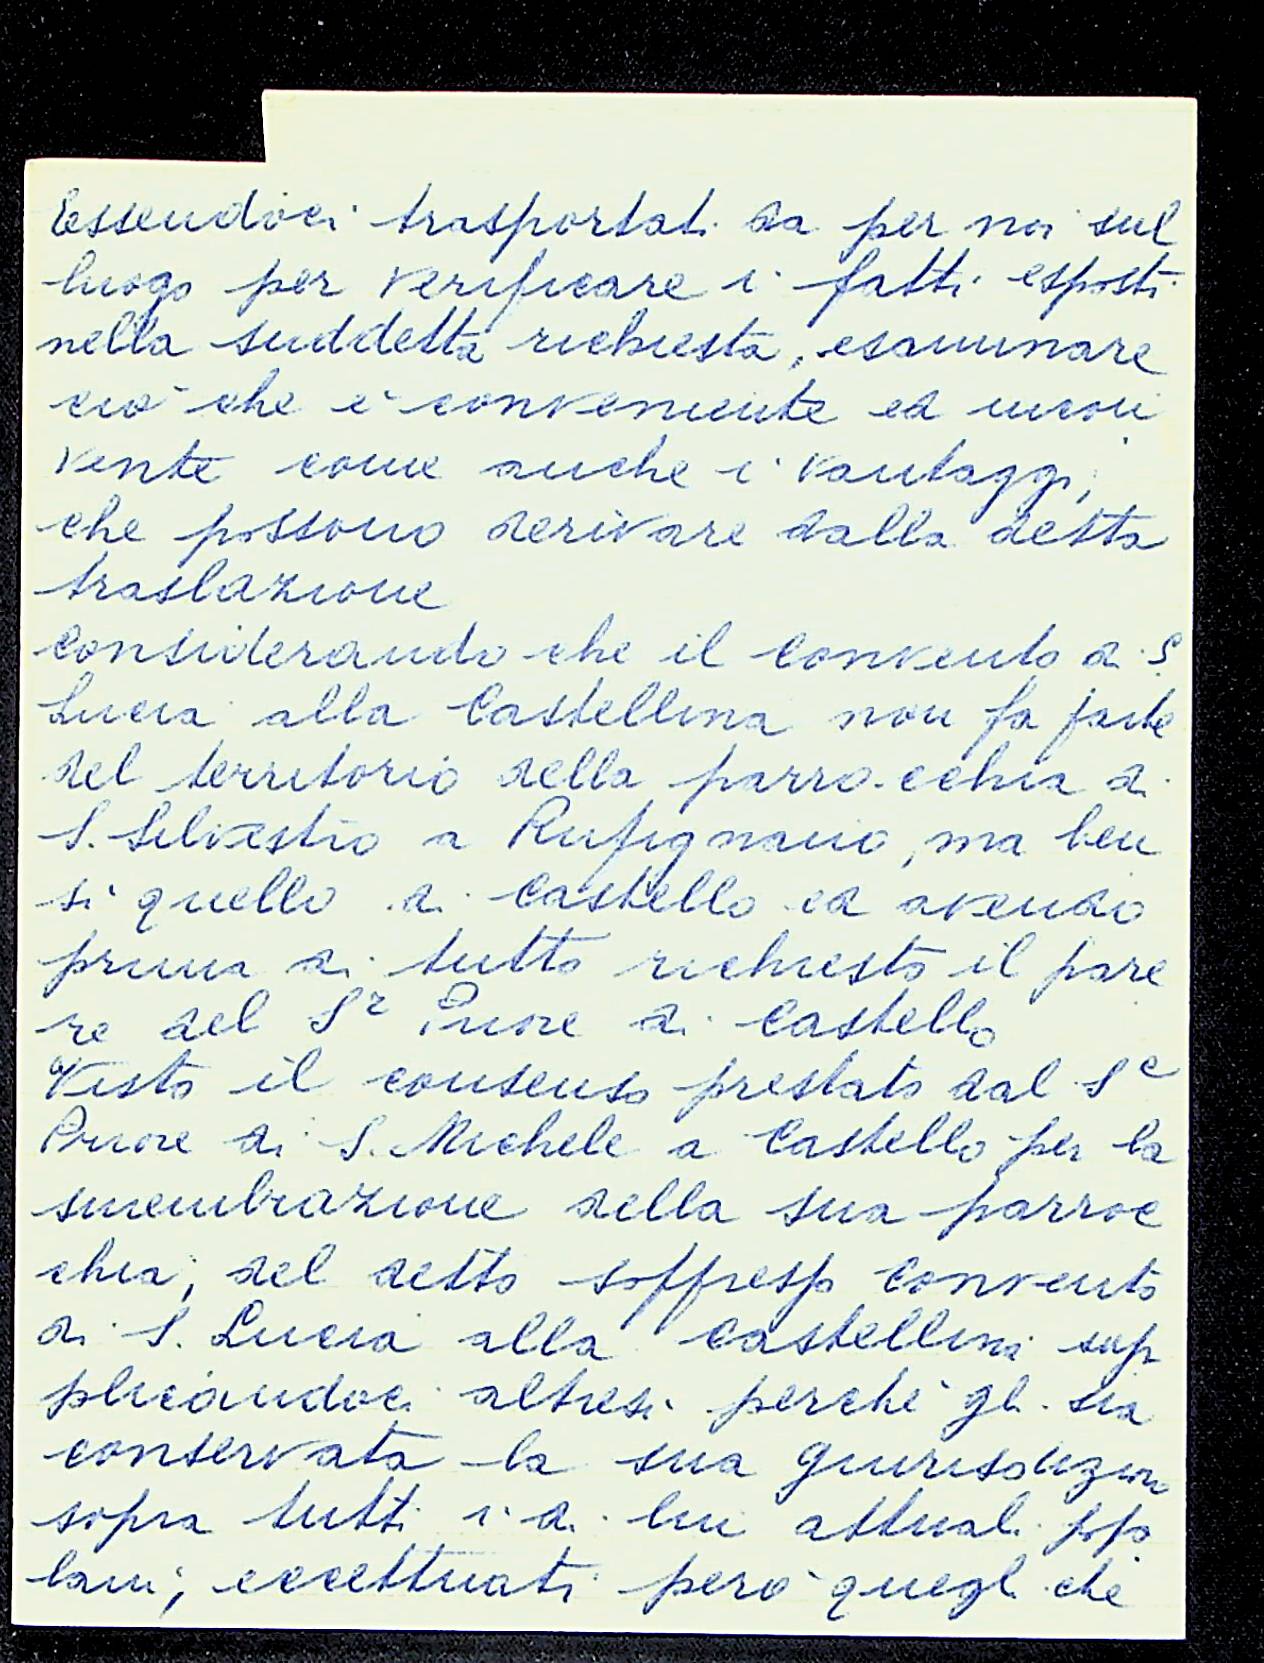 Essendoci trasportati da per noi sul
luogo per verificare i fatti esposti
nella suddetta richiesta, esaminare
ciò che è conveniente ed incon
vente come anche i vantaggi,
che possono derivare dalla detta
traslazione
Considerando che il Convento di S.
Lucia alla Castellina non fa parte
del territorio della parrocchia di
S. Silvestro a Rufignano, ma ben
sì quello di Castello ed avendo
prima di tutto richiesto il pare
re del Sr Priore di Castello
Visto il consenso prestato dal Sr
Priore di S. Michele a Castello per la
smembrazione della sua parroc
chia, del detto soppresso Convento
di S. Lucia alla Castellina sup
plicandoci altresì perchè gli sia
conservata la sua giurisdizion
sopra tutti i di lui attuali popo
lani, eccettuati però quegli che